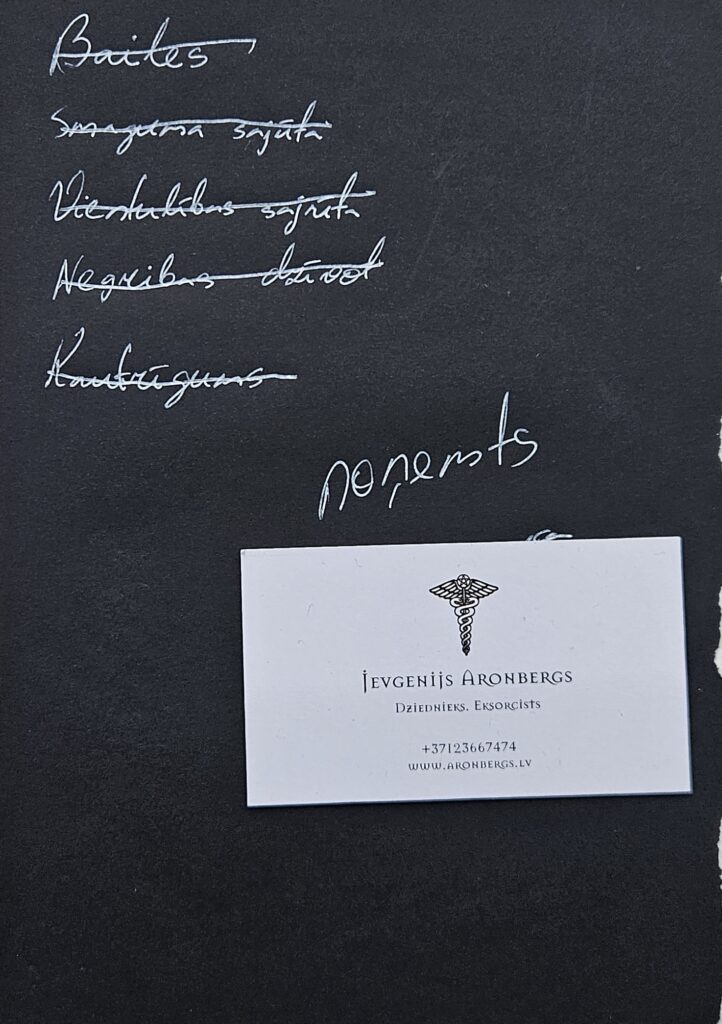 Bailes
Smaguma sajūta
Vientulības sajūta
Negribas dzīvot
Kautrīgums
noņemts
Jevgenijs Aronbergs
Dziednieks. Eksorcists
+37123667474
www.aronbergs.lv